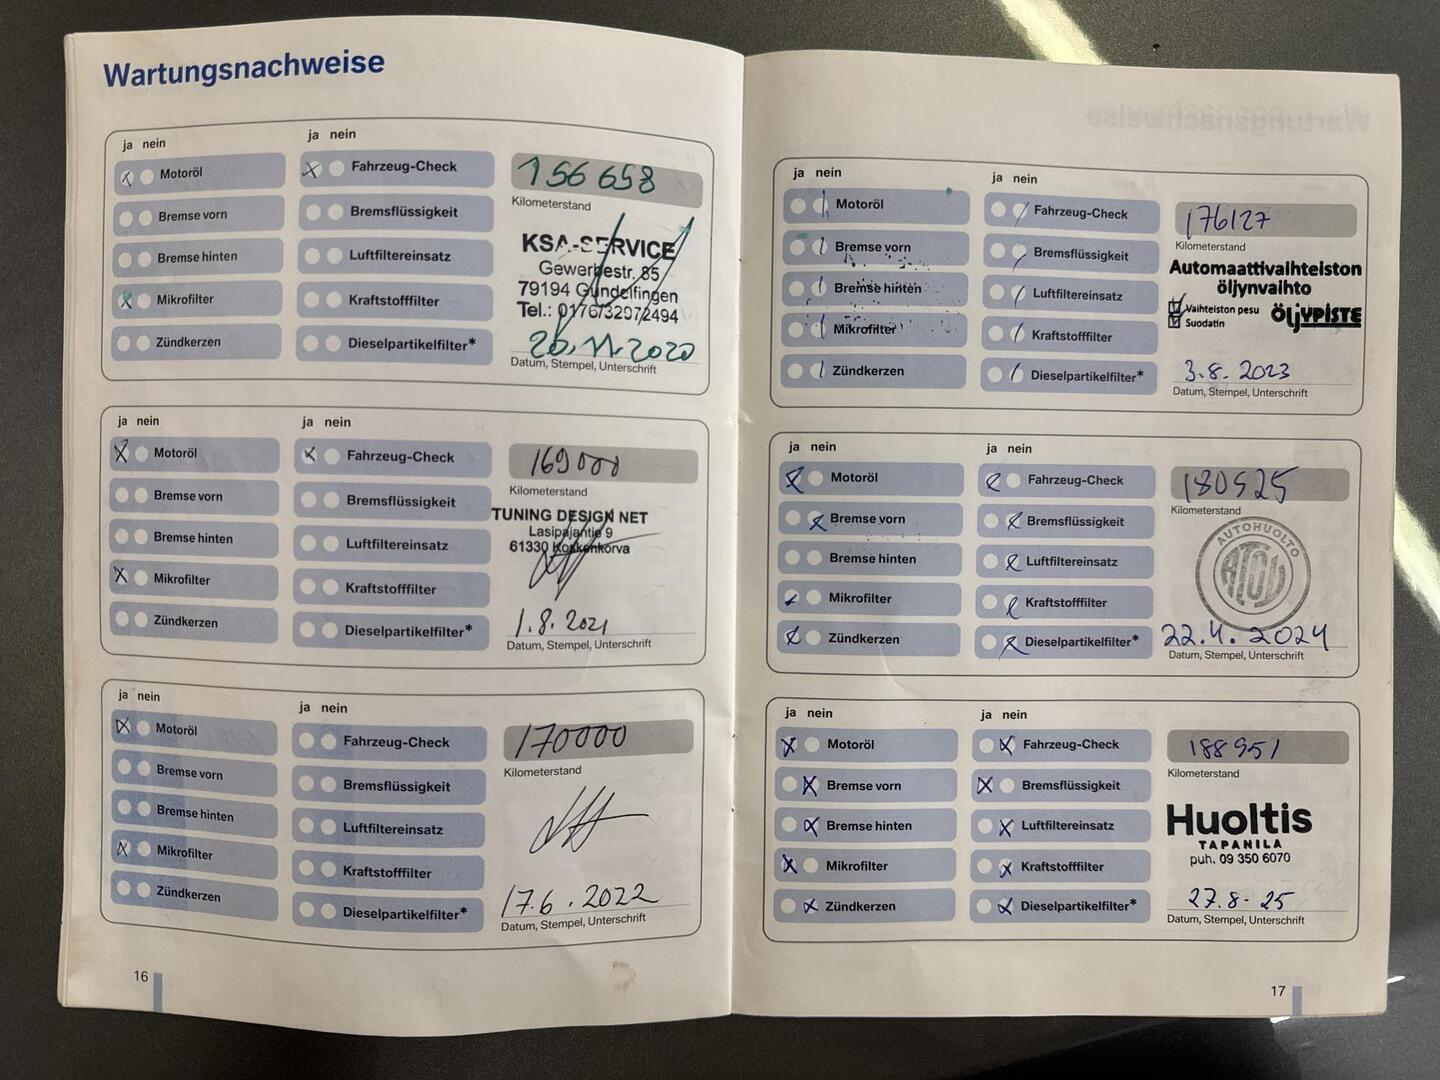 Wartungsnachweise
ja nein
ja nein
Motoröl
Fahrzeug-Check
Bremse vorn
Bremsflüssigkeit
Bremse hinten
Luftfiltereinsatz
Mikrofilter
Kraftstofffilter
Zündkerzen
Dieselpartikelfilter*
156 658
Kilometerstand
KSA-SERVICE
Gewerbestr. 85
79194 Gundelfingen
Tel.: 0176/32972494
26.11.2020
Datum, Stempel, Unterschrift
ja nein
ja nein
Motoröl
Fahrzeug-Check
Bremse vorn
Bremsflüssigkeit
Bremse hinten
Luftfiltereinsatz
Mikrofilter
Kraftstofffilter
Zündkerzen
Dieselpartikelfilter*
169000
Kilometerstand
TUNING DESIGN NET
Lasipajantie 9
61330 Koskenkorva
1.8.2021
Datum, Stempel, Unterschrift
ja nein
ja nein
Motoröl
Fahrzeug-Check
Bremse vorn
Bremsflüssigkeit
Bremse hinten
Luftfiltereinsatz
Mikrofilter
Kraftstofffilter
Zündkerzen
Dieselpartikelfilter*
170000
Kilometerstand
17.6.2022
Datum, Stempel, Unterschrift
16
ja nein
ja nein
Motoröl
Fahrzeug-Check
Bremse vorn
Bremsflüssigkeit
Bremse hinten
Luftfiltereinsatz
Mikrofilter
Kraftstofffilter
Zündkerzen
Dieselpartikelfilter*
176127
Kilometerstand
Automaattivaihteiston
öljynvaihto
Vaihteiston pesu
Suodatin
ÖLJYPISTE
3.8.2023
Datum, Stempel, Unterschrift
ja nein
ja nein
Motoröl
Fahrzeug-Check
Bremse vorn
Bremsflüssigkeit
Bremse hinten
Luftfiltereinsatz
Mikrofilter
Kraftstofffilter
Zündkerzen
Dieselpartikelfilter*
180525
Kilometerstand
AUTOHUOLTO
22.4.2024
Datum, Stempel, Unterschrift
ja nein
ja nein
Motoröl
Fahrzeug-Check
Bremse vorn
Bremsflüssigkeit
Bremse hinten
Luftfiltereinsatz
Mikrofilter
Kraftstofffilter
Zündkerzen
Dieselpartikelfilter*
188951
Kilometerstand
Huoltis
TAPANILA
puh. 09 350 6070
27.8-25
Datum, Stempel, Unterschrift
17